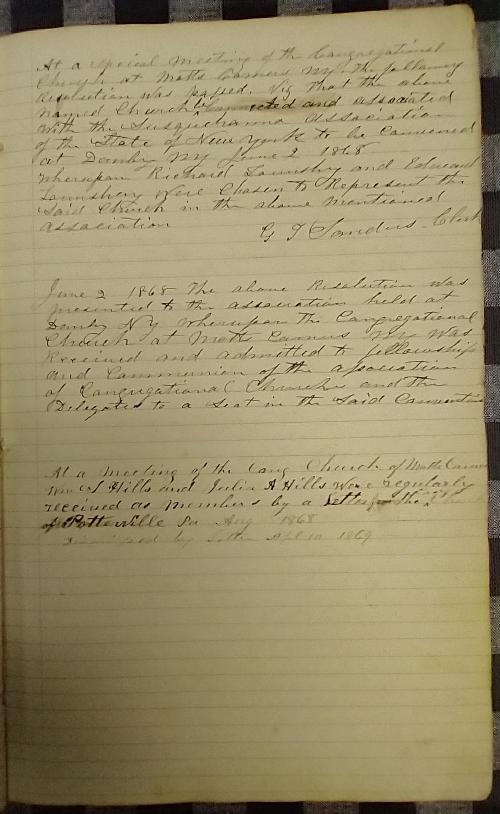 At a Special Meeting of the Congregational
Church at Motts Corners NY the following
Resolution was passed, Viz that the above
named Church be connected and associated
with the Susquehanna Association
of the State of New York to be convened
at Danby NY June 2 1868
Whereupon Richard Lounsbry and Edward
Lounsbery were Chosen to Represent the
Said Church in the above mentioned
Association
G T Sanders Clerk
June 2 1868 The above Resolution was
presented to the association held at
Danby NY Whereupon the Congregational
Church at Motts Corners NY was
Received and admitted to fellowship
and Communion of the association
of Congregational Churches and the
Delegates to a Seat in the Said Convention
At a Meeting of the Cong Church of Motts Corners
Wm S Hills and Julia A Hills were regularly
received as members by a letter from the
of Potterville Pa Aug 1868
Dismissed by Letter Apl 10 1869